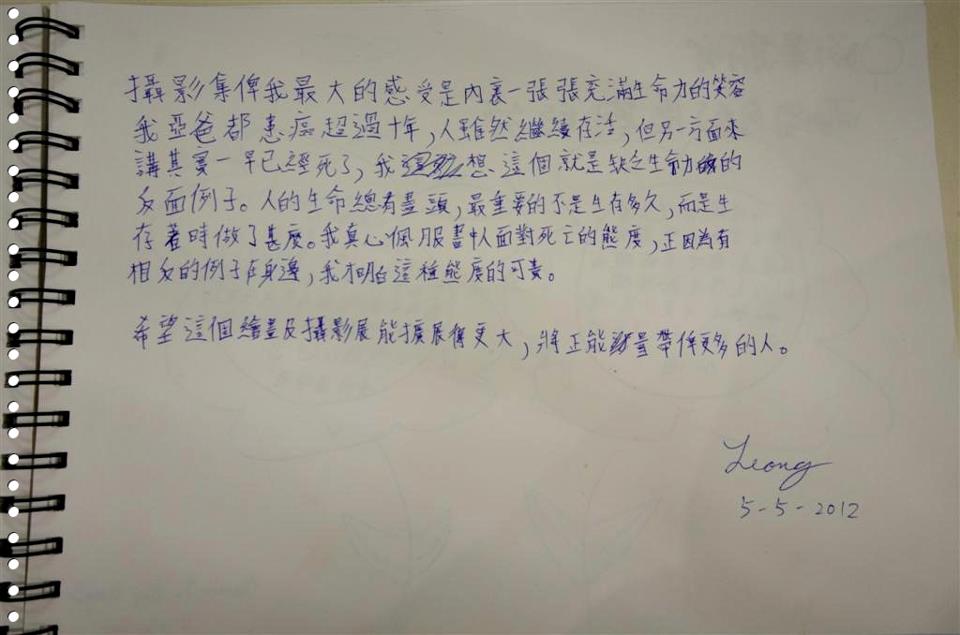 攝影集俾我最大的感受是內裏一張張充滿生命力的笑容
我亞爸都患癌超過十年，人雖然繼續存活，但另一方面來
講其實一早已經死了，我想這個就是缺乏生命力的
反面例子。人的生命總有盡頭，最重要的不是生存多久，而是生
存著時做了甚麼。我真心佩服畫中人面對死亡的態度，正因為有
相反的例子在身邊，我才明白這種態度的可貴。
希望這個繪畫及攝影展能擴展得更大，將正能量帶俾更多的人。
Leong
5-5-2012